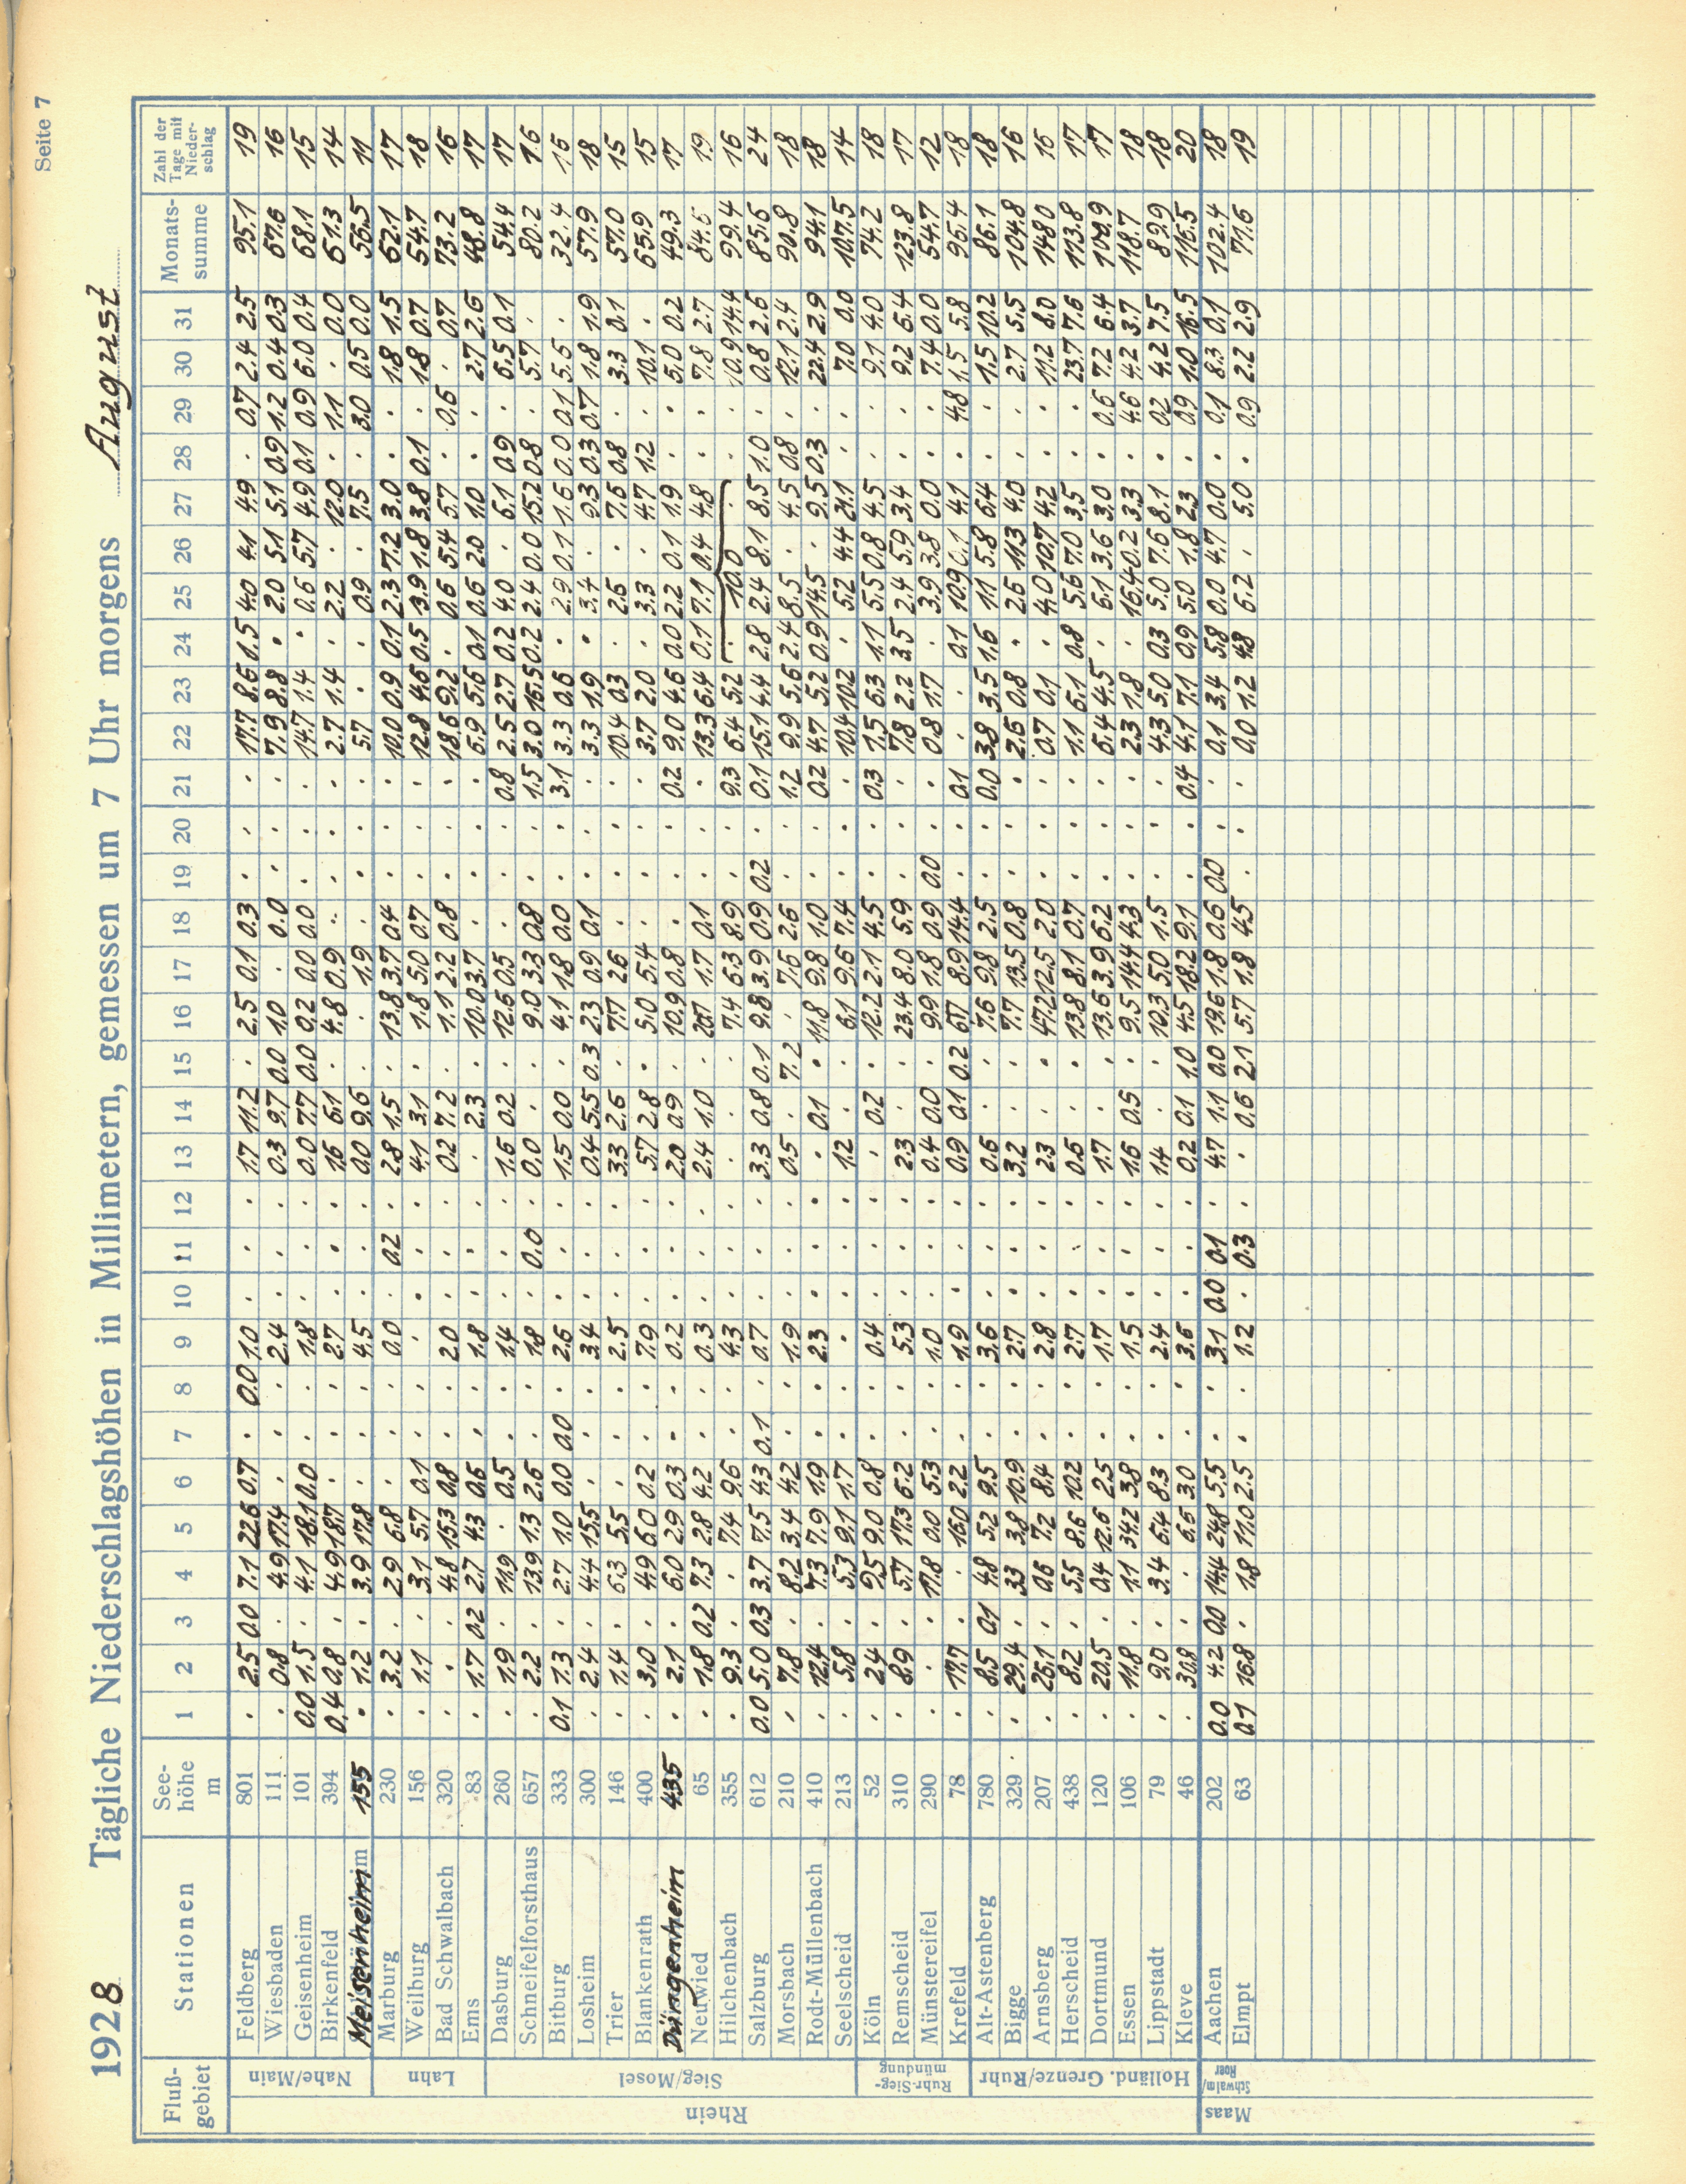 Seite 7
1928 Tägliche Niederschlagshöhen in Millimetern, gemessen um 7 Uhr morgens August
Fluß-gebiet Stationen See-höhe m 1 2 3 4 5 6 7 8 9 10 11 12 13 14 15 16 17 18 19 20 21 22 23 24 25 26 27 28 29 30 31 Monats-summe Zahl der Tage mit Nieder-schlag
Rhein
Nahe/Main
Feldberg 801 . 2.5 0.0 7.1 22.6 0.7 . 0.0 1.0 . . . 1.7 11.2 . 2.5 0.1 0.3 . . . 17.7 8.6 1.5 4.0 4.1 4.9 . 0.7 2.4 2.5 95.1 19
Wiesbaden 111 . 0.8 . 4.9 17.4 . . . 2.4 . . . 0.3 9.7 0.0 1.0 . 0.0 . . . 7.9 8.8 . 2.0 5.1 5.1 0.9 1.2 0.4 0.3 67.6 16
Geisenheim 101 0.0 1.5 . 4.1 18.1 0.0 . . 1.8 . . . 0.0 7.7 0.0 0.2 0.0 0.0 . . . 14.7 1.4 . 0.6 5.7 4.9 0.1 0.9 6.0 0.4 68.1 15
Birkenfeld 394 0.4 0.8 . 4.9 18.7 . . . 2.7 . . . 1.6 6.1 . 4.8 0.9 . . . . 2.7 1.4 . 2.2 . 12.0 . 1.1 . 0.0 61.3 14
Meisenheim 155 . 1.2 . 3.9 17.8 . . . 4.5 . . . 0.0 9.6 . . 1.9 . . . . 5.7 . . 0.9 . 7.5 . 3.0 0.5 0.0 56.5 11
Lahn
Marburg 230 . 3.2 . 2.9 6.8 . . . 0.0 . 0.2 . 2.8 1.5 . 13.8 3.7 0.4 . . . 10.0 0.9 0.1 2.3 7.2 3.0 . . 1.8 1.5 62.1 17
Weilburg 156 . 1.1 . 3.1 5.7 0.1 . . . . . . 4.1 3.1 . 1.8 5.0 0.7 . . . 12.8 4.6 0.5 13.9 1.8 3.8 0.1 . 1.8 0.7 54.7 18
Bad Schwalbach 320 . . . 4.8 15.3 0.8 . . 2.0 . . . 0.2 7.2 . 1.1 2.2 0.8 . . . 18.6 9.2 . 0.6 5.4 5.7 . 0.6 . 0.7 73.2 16
Ems 83 . 1.7 0.2 2.7 4.3 0.6 . . 1.8 . . . . 2.3 . 10.0 3.7 . . . . 6.9 5.6 0.1 0.6 2.0 1.0 . . 2.7 2.6 48.8 17
Sieg/Mosel
Dasburg 260 . 1.9 . 11.9 . 0.5 . . 1.4 . . . 1.6 0.2 . 12.6 0.5 . . . 0.8 2.5 2.7 0.2 4.0 . 6.1 0.9 . 6.5 0.1 54.4 17
Schneifelforsthaus 657 . 2.2 . 13.9 1.3 2.6 . . 1.8 . 0.0 . 0.0 . . 9.0 3.3 0.8 . . 1.5 3.0 16.5 0.2 2.4 0.0 15.2 0.8 . 5.7 . 80.2 16
Bitburg 333 0.1 1.3 . 2.7 1.0 0.0 0.0 . 2.6 . . . 1.5 0.0 . 4.1 1.8 0.0 . . 3.1 3.3 0.6 . 2.9 0.1 1.6 0.0 0.1 5.6 . 32.4 15
Losheim 300 . 2.4 . 4.4 15.5 . . . 3.4 . . . 0.4 5.5 0.3 2.3 0.9 0.1 . . . 3.3 1.9 . 3.4 . 9.3 0.3 0.7 1.8 1.9 57.9 18
Trier 146 . 1.4 . 6.3 5.5 . . . 2.5 . . . 3.3 2.6 . 7.7 2.6 . . . . 10.4 0.3 . 2.6 . 7.6 0.8 . 3.3 0.1 57.0 15
Blankenrath 400 . 3.0 . 4.9 6.0 0.2 . . 7.9 . . . 5.7 2.8 . 5.0 5.4 . . . . 3.7 2.0 . 3.3 . 4.7 1.2 . 10.1 . 65.9 15
Düngenheim 435 . 2.1 . 6.0 2.9 0.3 . . 0.2 . . . 2.0 0.9 . 10.9 0.8 . . . 0.2 9.0 4.6 0.0 2.2 0.1 1.9 . . 5.0 0.2 49.3 17
Neuwied 65 . 1.8 0.2 7.3 2.8 4.2 . . 0.3 . . . 2.4 1.0 . 20.7 1.7 0.1 . . . 13.3 6.4 0.1 7.1 0.4 4.8 . . 7.8 2.7 84.6 19
Hilchenbach 355 . 9.3 . . 7.4 9.6 . . 4.3 . . . . . . 7.4 6.3 8.9 . . 9.3 6.4 5.2 . 10.0 . . . 10.9 14.4 99.4 16
Salzburg 612 0.0 5.0 0.3 3.7 7.5 4.3 0.1 . 0.7 . . . 3.3 0.8 0.1 9.8 3.9 0.9 0.2 . 0.1 15.1 4.4 2.8 2.4 8.1 8.5 1.0 . 0.8 2.6 85.6 24
Morsbach 210 . 7.8 . 8.2 3.4 4.2 . . 1.9 . . . 0.5 . 7.2 . 7.6 2.6 . . 1.2 9.9 5.6 2.4 8.5 . 4.5 0.8 . 12.1 2.4 90.8 18
Rodt-Müllenbach 410 . 12.4 . 7.3 7.9 1.9 . . 2.3 . . . . 0.1 . 11.8 9.8 1.0 . . 0.2 4.7 5.2 0.9 14.5 . 9.5 0.3 . 22.4 2.9 94.1 18
Seelscheid 213 . 5.8 . 5.3 9.1 1.7 . . . . . . 1.2 . . 6.1 9.6 7.4 . . . 10.4 10.2 . 5.2 4.4 21.1 . . 7.0 0.0 107.5 14
Ruhr-Sieg-mündung
Köln 52 . 2.4 . 9.5 9.0 0.8 . . 0.4 . . . . 0.2 . 12.2 2.1 4.5 . . 0.3 1.5 6.3 1.1 5.5 0.8 4.5 . . 9.1 4.0 74.2 18
Remscheid 310 . 8.9 . 5.7 17.3 6.2 . . 5.3 . . . 2.3 . . 23.4 8.0 5.9 . . . 7.8 2.2 3.5 2.4 5.9 3.4 . . 9.2 6.4 123.8 17
Münstereifel 290 . . . 17.8 0.0 5.3 . . 1.0 . . . 0.4 0.0 . 9.9 1.8 0.9 0.0 . . 0.8 1.7 . 3.9 3.8 0.0 . . 7.4 0.0 54.7 12
Krefeld 78 . 17.7 . . 16.0 2.2 . . 1.9 . . . 0.9 0.1 0.2 6.7 8.9 14.4 . . 0.1 . . 0.1 10.9 0.1 4.1 . 4.8 1.5 5.8 96.4 18
Holländ. Grenze/Ruhr
Alt-Astenberg 780 . 8.5 0.1 4.8 5.2 9.5 . . 3.6 . . . 0.6 . . 7.6 9.8 2.5 . . 0.0 3.8 3.5 1.6 1.1 5.8 6.4 . . 1.5 10.2 86.1 18
Bigge 329 . 29.4 . 3.3 3.8 10.9 . . 2.7 . . . 3.2 . . 7.7 13.5 0.8 . . . 2.6 0.8 . 2.6 11.3 4.0 . . 2.7 5.5 104.8 16
Arnsberg 207 . 26.1 . 0.6 7.2 8.4 . . 2.8 . . . 2.3 . . 47.2 12.5 2.0 . . . 0.7 0.1 . 4.0 10.7 4.2 . . 11.2 8.0 148.0 16
Herscheid 438 . 8.2 . 5.5 8.6 10.2 . . 2.7 . . . 0.6 . . 13.8 8.1 0.7 . . . 1.1 6.1 0.8 5.6 7.0 3.5 . . 23.7 7.6 113.8 17
Dortmund 120 . 20.5 . 0.4 12.6 2.5 . . 1.7 . . . 1.7 . . 13.6 3.9 6.2 . . . 6.4 4.5 . 6.1 3.6 3.0 . 0.6 7.2 6.4 100.9 17
Essen 106 . 11.8 . 1.1 34.2 3.8 . . 1.5 . . . 1.6 0.5 . 9.5 14.4 4.3 . . . 2.3 1.8 . 16.4 0.2 3.3 . 4.6 4.2 3.7 118.7 18
Lippstadt 79 . 9.0 . 3.4 6.4 8.3 . . 2.4 . . . 1.4 . . 10.3 5.0 1.5 . . . 4.3 5.0 0.3 5.0 7.6 8.1 . 0.2 4.2 7.5 89.9 18
Kleve 46 . 30.8 . . 6.5 3.0 . . 3.6 . . . 0.2 0.1 1.0 4.5 18.2 9.1 . . 0.4 4.1 7.1 0.9 5.0 1.8 2.3 . 0.9 1.0 16.5 116.5 20
Maas
Schwalm/Roer
Aachen 202 0.0 4.2 0.0 14.4 24.8 5.5 . . 3.1 0.0 0.1 . 4.7 1.1 0.0 19.6 1.8 0.6 0.0 . . 0.1 3.4 5.8 0.0 4.7 0.0 . 0.1 8.3 0.1 102.4 18
Elmpt 63 0.1 16.8 . 1.8 11.0 2.5 . . 1.2 . 0.3 . . 0.6 2.1 5.7 1.8 4.5 . . . 0.0 1.2 4.8 6.2 . 5.0 . 0.9 2.2 2.9 71.6 19